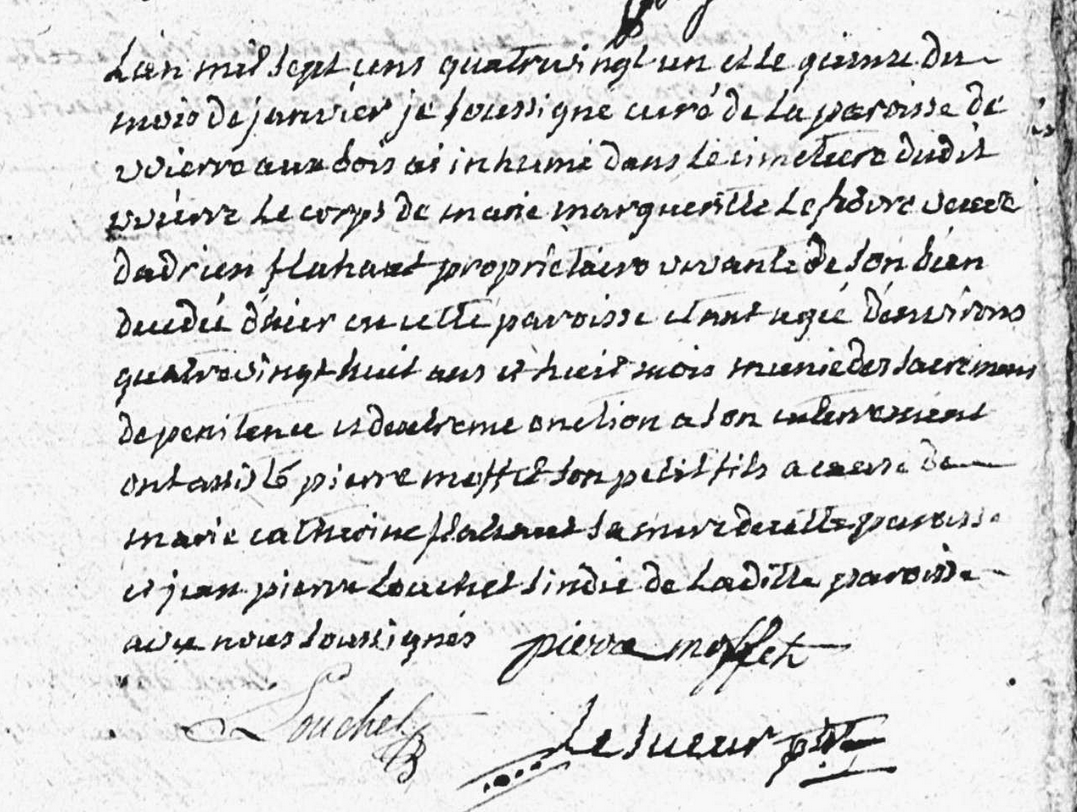 L'an mil sept cens quatrevingt un et le quinze du
mois de janvier je soussigné curé de la paroisse de
wierre aux bois ai inhumé dans le cimetiere dudit
wierre le corps de marie margueritte Lefebvre veuve
dadrien flahaut proprietaire vivante de son bien
decedé d'hier en cette paroisse etant agée d'environs
quatrevingt huit ans et huit mois munie des sacremens
de penitence et dextreme onction a son enterrement
ont assisté pierre moffet son petit fils a cause de
marie catherine flahaut sa mere de cette paroisse
et jean pierre Louchet sindic de Ladille paroisse
avec nous soussignés pierre moffet
Louchet
Lesueur ptre